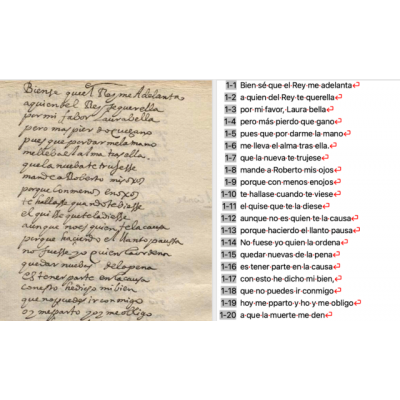 Bien se que el Rey me Adelanta
a quien del Rey se querella
por mi fabor laura bella
pero mas pierdo que gano
pues que por dar me la mano
me lleba el alma tras ella
que la nueba te trujesse
mande a Roberto mis ojos
porque con menos enojos
te hallasse quando te
el quise que te la diesse
aunque no es quien te la causa
porque haciendo el llanto paussa
no fuesse yo quien la ordena
quedar nuebas de la pena
es tener parte en la causa
con esto he dicho mi bien
que no puedes ir conmigo
oy me parto y oy me obligo
1-1 Bien sé que el Rey me adelanta↩
1-2 a quien del Rey te querella↩
1-3 por mi favor, Laura bella↩
1-4 pero más pierdo que gano↩
1-5 pues que por darme la mano↩
1-6 me lleva el alma tras ella.↩
1-7 que la nueva te trujese↩
1-8 mande a Roberto mis ojos↩
1-9 porque con menos enojos↩
1-10 te hallase cuando te viese↩
1-11 el quise que te la diese↩
1-12 aunque no es quien te la causa↩
1-13 porque hacierdo el llanto pausa↩
1-14 No fuese yo quien la ordena↩
1-15 quedar nuevas de la pena↩
1-16 es tener parte en la causa↩
1-17 con esto he dicho mi bien,↩
1-18 que no puedes ir conmigo↩
1-19 hoy me pparto y ho y me obligo↩
1-20 a que la muerte me den↩